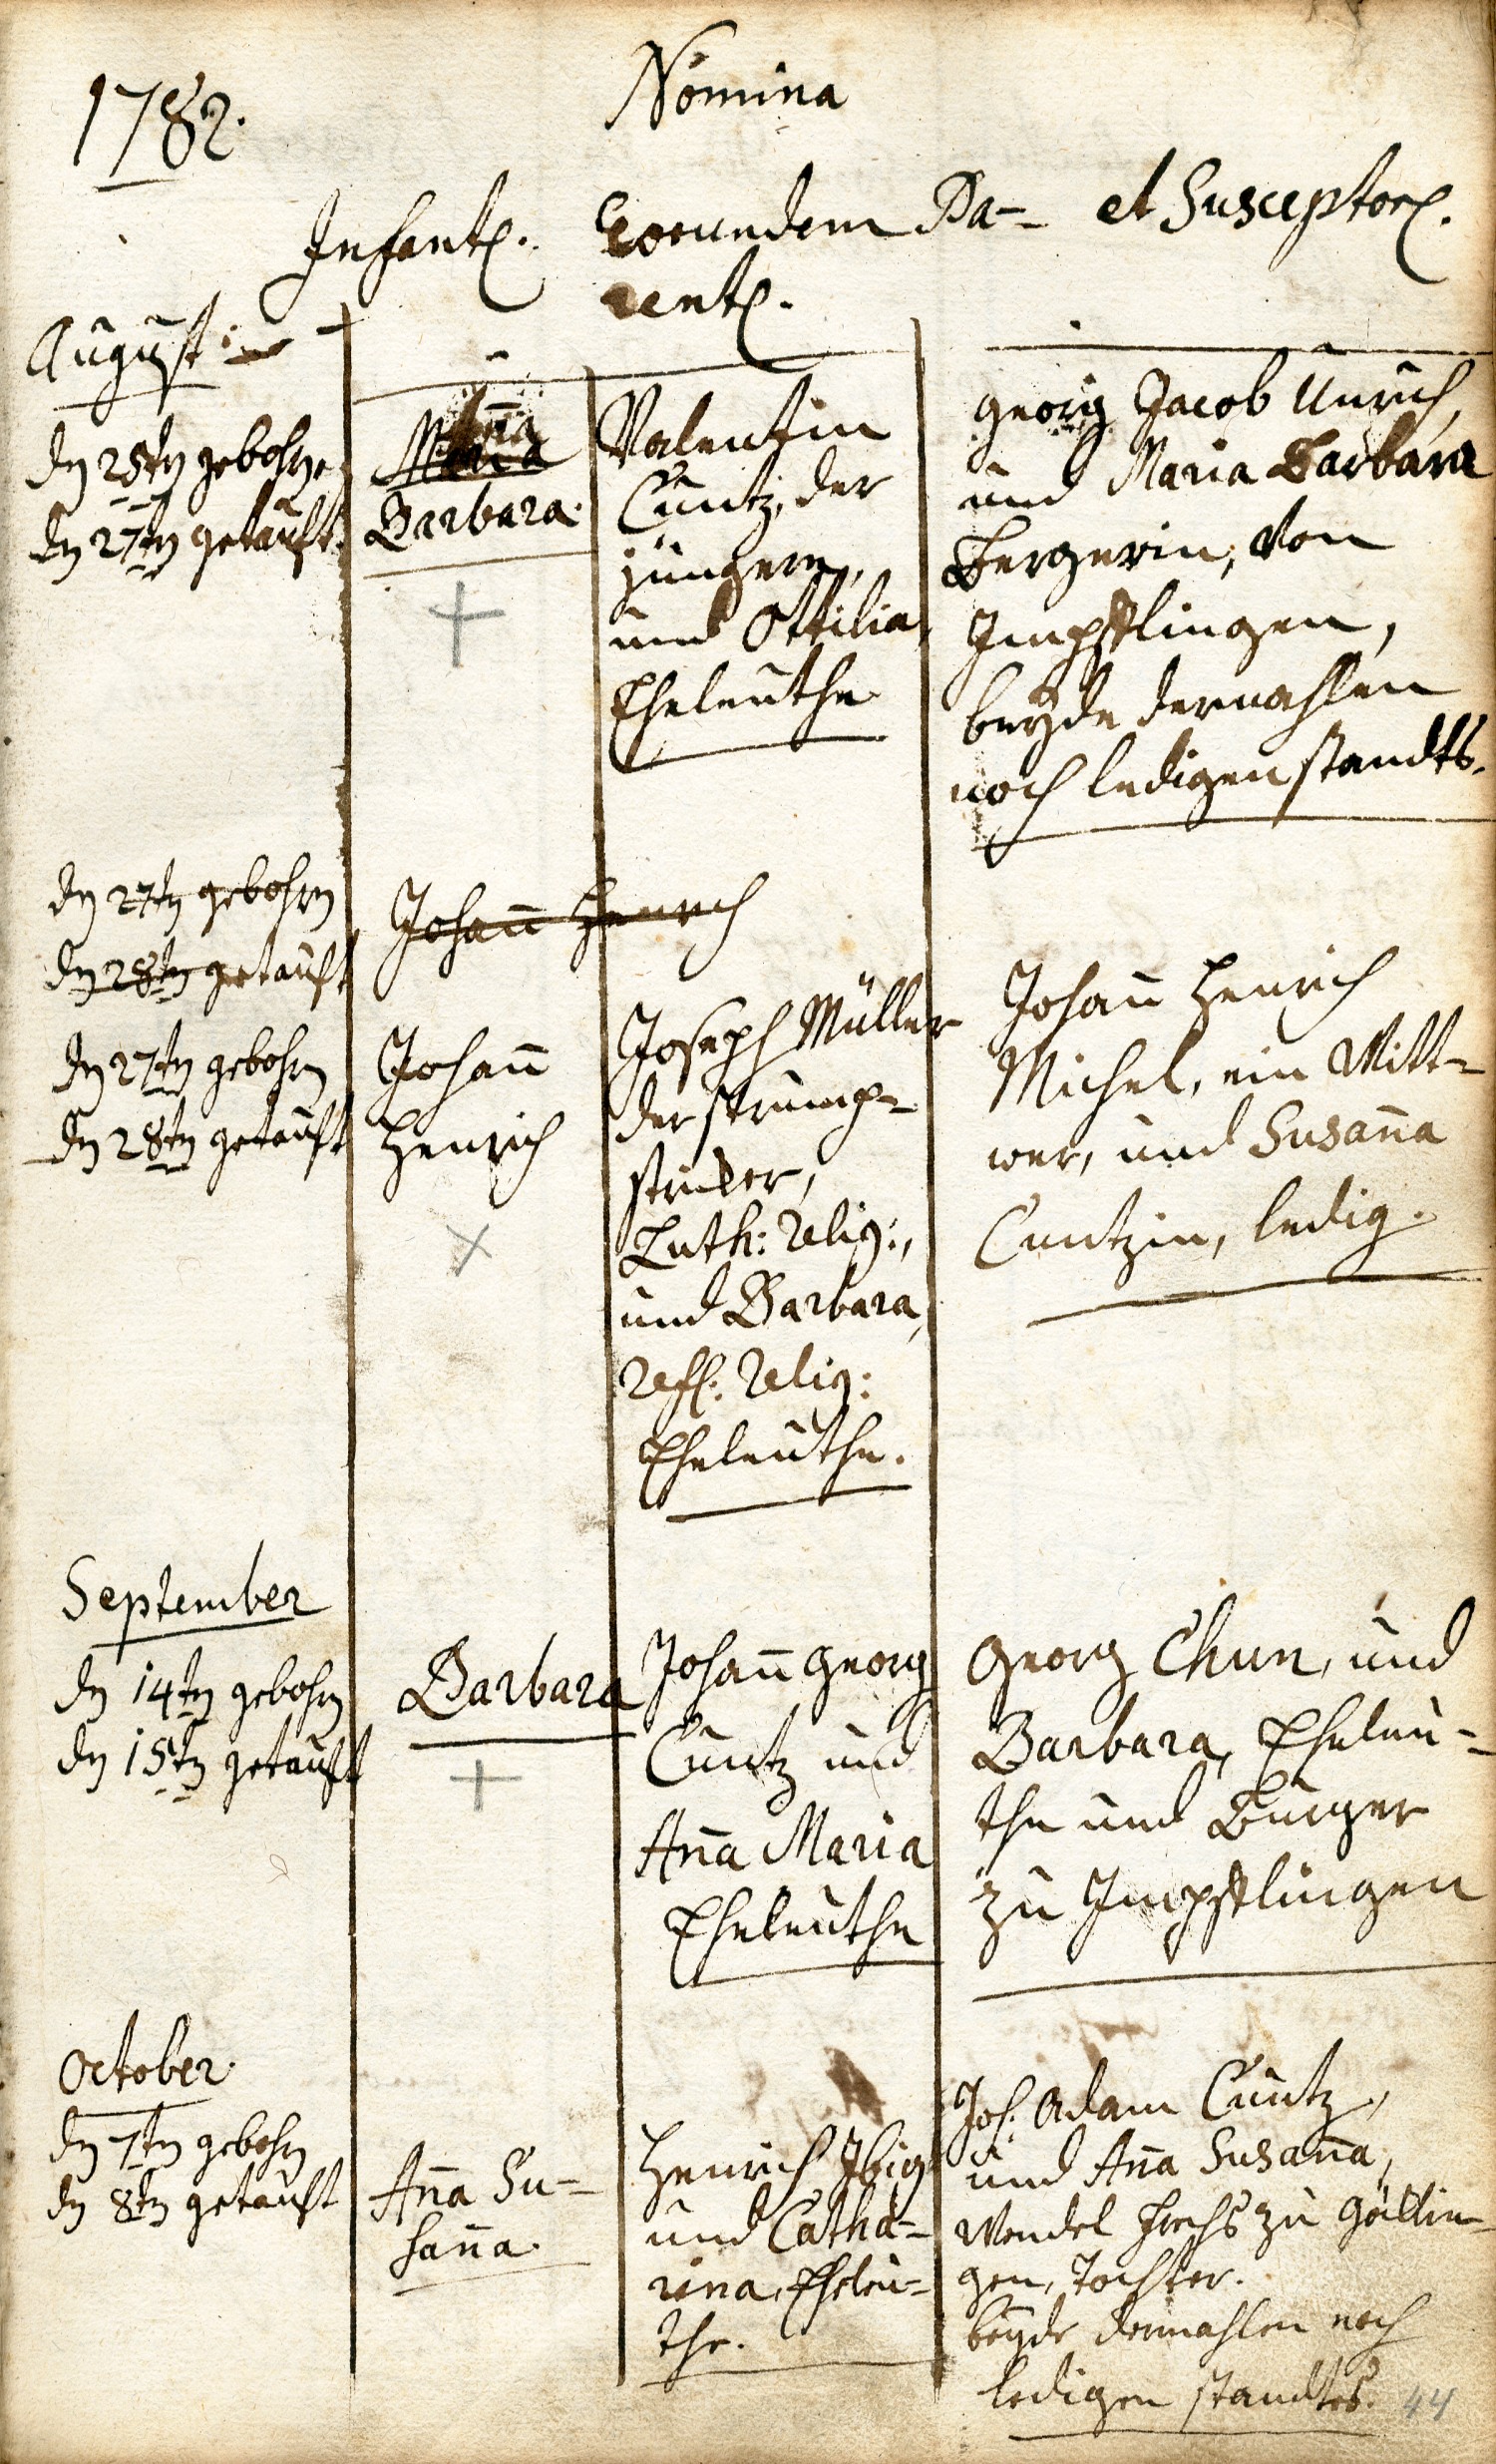 1782.
Nomina
Infant. Eorundem Pa- et Susceptor.
rent.
August:
dn 25tn gebohrn
dn 27tn getauft.
Anna
Maria
Barbara.
Valentin
Cuntz, der
jüngere,
und Ottilia,
Eheleuthe
Georg Jacob Unrich,
und Maria Barbara
Bergerin, von
Impflingen,
beyde dermahlen
noch ledigen standts.
dn 27tn gebohrn
dn 28tn getauft
Johann Henrich
dn 27tn gebohrn
dn 28tn getauft
Johann
Henrich
Joseph Müller
der strump-
stricker,
Luth: Relig:,
und Barbara,
Ref: Relig:
Eheleuthe.
Johann Henrich
Michel, ein Witt-
wer, und Susanna
Cuntzin, ledig.
September
dn 14tn gebohrn
dn 15tn getauft
Barbara
Johann Georg
Cuntz und
Anna Maria
Eheleuthe
Georg Chun, und
Barbara, Eheleu-
the und Burger
zu Impflingen
October.
dn 7tn gebohrn
dn 8tn getauft
Anna Su-
sanna.
Henrich Ibig
und Catha-
rina, Eheleu-
the.
Joh. Adam Cuntz,
und Anna Susanna,
Wendel zu Göcklin-
gen, Tochter.
beyde dermahlen noch
ledigen standtes.
44